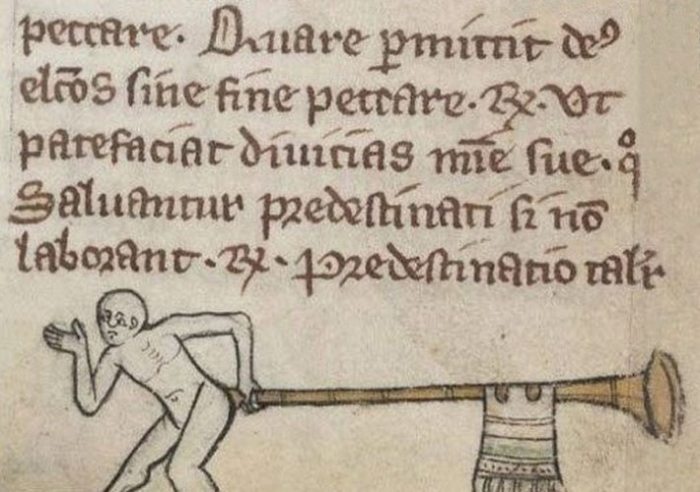 peccare. Quare ꝑmittit deꝰ
elc̄os sine fine peccare. ℞. Vt
patefaciat diuicias mīe sue. qͦ
Saluantur predestinati si nō
laborant. ℞. Predestinatio talr̄